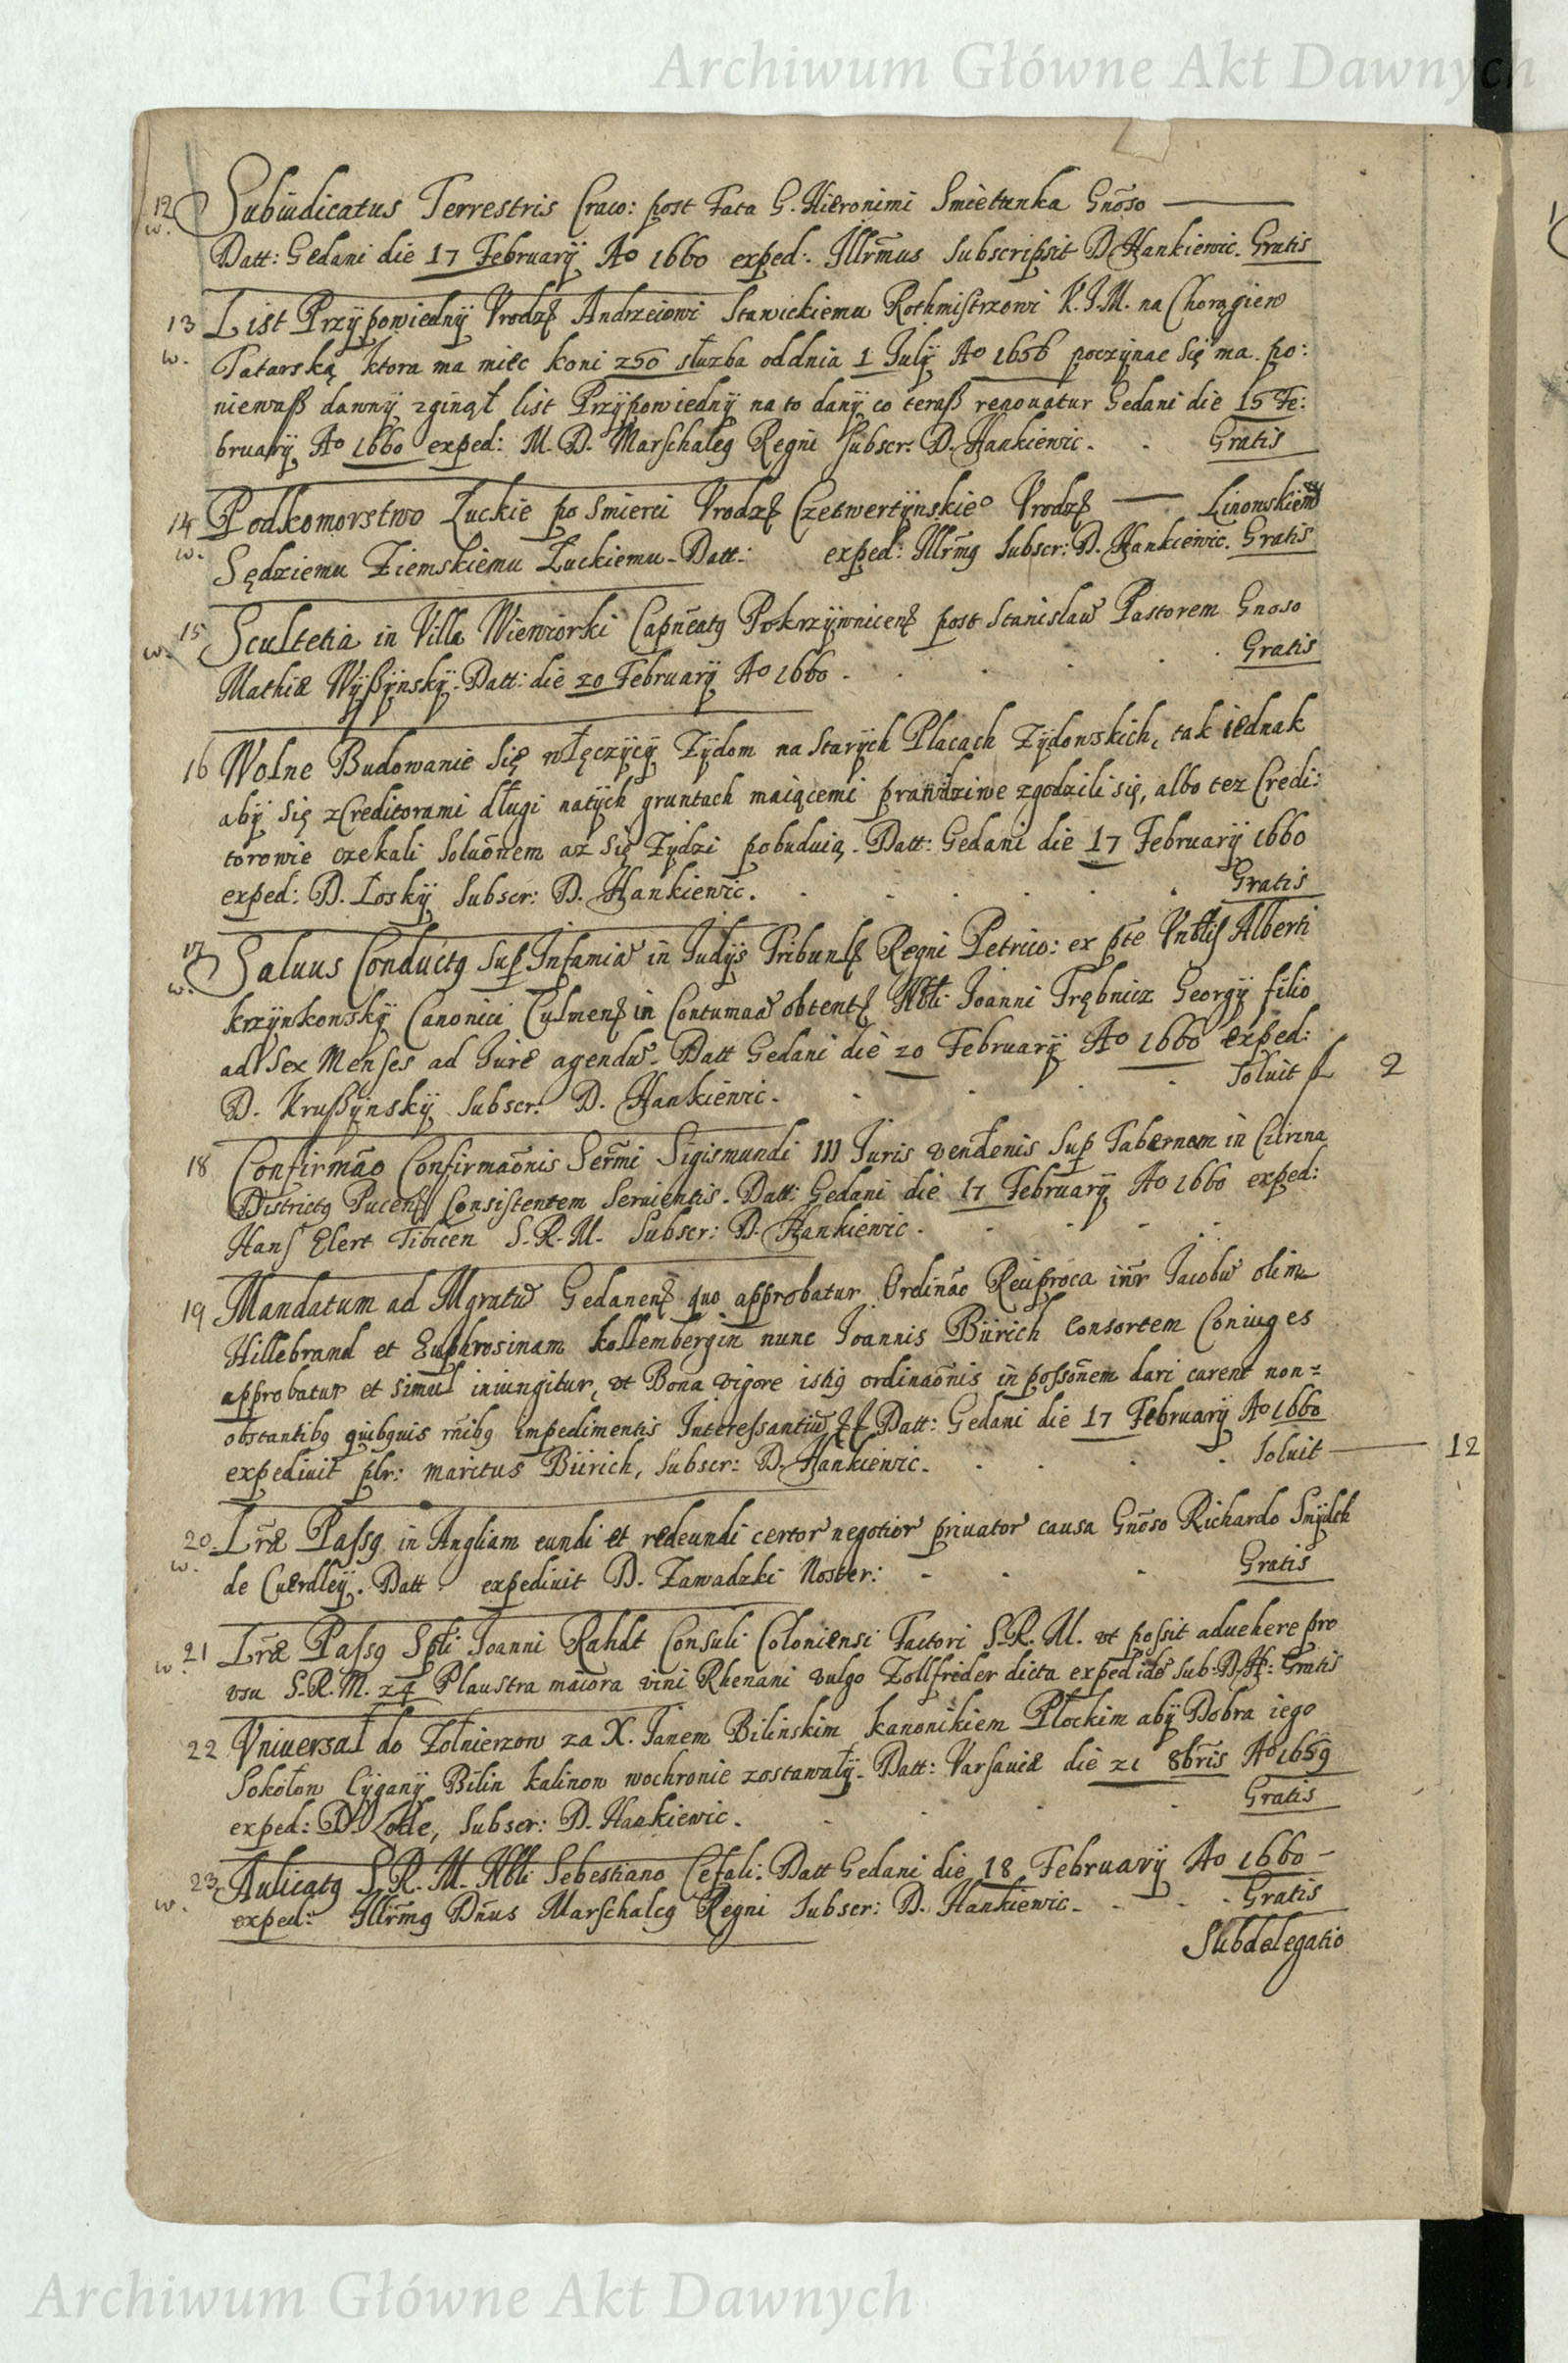 Archiwum Główne Akt Dawnych
12 Subiudicatus Terrestris Craco: post Fata G. Hieronimi Smietanka Gnõso
w. Datt: Gedani die 17 February Ao 1660 exped: Illrm̃us Subscripsit D Hankiewic. Gratis
13 List Przÿpowiednÿ Vrodz Andrzeiowi Stawickiemu Rothmistrzowi K.J.M. na Chorągiew
w. Tatarską ktora ma miec koni 250 służba oddnia 1 Julÿ Ao 1656 poczÿnac się ma. po:
niewaß dawnÿ zginął list Przÿpowiednÿ na to danÿ co teraß renouatur Gedani die 15 Fe:
bruarÿ Ao 1660 exped: M. D. Marschalcg Regni subscr: D. Hankiewic. Gratis
14 Podkomorstwo Łuckie po smierci Vrodz Czetwertÿnskieo Vrodz Linowskiem
w. Sędziemu Ziemskiemu Łuckiemu. Datt: exped: Illrm̃g Subscr: D. Hankiewic. Gratis
15 Scultetia in Villa Wiewiorki Capñeatg Pokrzÿwnicens post Stanislaw Pastorem Gnoso
w. Gratis
Mathiæ Wÿßÿnskÿ. Datt: die 20 Februarÿ Ao 1660.
16 Wolne Budowanie się włęczÿcÿ Zÿdom na Starÿch Placach Zÿdowskich, tak iednak
abÿ się zCreditorami długi natÿch gruntach maiącemi prawdziwe zgodzili się, albo tez Credi:
torowie czekali soluõnem az się Zÿdzi pobuduią. Datt: Gedani die 17 Februarÿ 1660
exped: D. Loskÿ Subscr: D. Hankiewic. Gratis
17 Saluus Conductg sup Infamia in Judÿs Tribunls Regni Petrico: ex pte Vnblis Alberti
w. krzÿnkowskÿ Canonici Culmens in Contumaa obtents Nbli Joanni Trębnicz Georgÿ filio
ad Sex Menses ad Jure agendu. Datt Gedani die 20 Februarÿ Ao 1660 exped:
D. Krußÿnskÿ Subscr: D. Hankiewic. Soluit f 2
18 Confirmão Confirmaõnis Serm̃i Sigismundi III Juris vendenis sup Tabernam in Czirzna
Districtg Pucens Consistentem Seruientis. Datt: Gedani die 17 Februarÿ Ao 1660 exped:
Hans Elert Tibicen S.R.M. Subscr: D. Hankiewic.
19 Mandatum ad Mgratu Gedanens quo approbatur Ordinão Reciproca inr̃ Jacobu olim
Hillebrand et Euphrosinam kollembergin nunc Joannis Bürich Consortem Coniuges
approbatur et simul iniungitur, vt Bona vigore istig ordinaõnis in possõnem dari carent non=
obstantibg quibguis rñibg impedimentis Interessantiu Datt: Gedani die 17 Februarÿ Ao 1660
expediuit plr: maritus Bürich, subscr: D. Hankiewic. Soluit 12
20. Lr̃æ Passg in Angliam eundi et redeundi certor negotior priuator causa Gnõso Richardo Smÿdch
w. de Cuerdleÿ. Datt expediuit D. Zawadzki Noster: Gratis
21 Lr̃æ Passg Spli Joanni Rahdt Consuli Coloniensi Factori S.R.M. vt possit aduehere pro
w. vsu S.R.M. 24 Plaustra maiora vini Rhenani vulgo Zollfreider dicta Sub: D. H: Gratis
22 Vniuersał do Zołnierzow za X. Janem Bilinskim kanonikiem Płockim abÿ Dobra iego
Sokołow Cÿganÿ Bilin kalinow wochronie zostawałÿ. Datt: Varsauiæ die 21 8bris Ao 1659
exped: Subscr: D. Hankiewic. Gratis
23 Aulicatg S.R.M. Nbli Sebestiano Cefali: Datt Gedani die 18 Februarÿ Ao 1660 –
w. exped: Illrm̃g Dñus Marschalcg Regni Subscr: D. Hankiewic. Gratis
Subdelegatio
Archiwum Główne Akt Dawnych